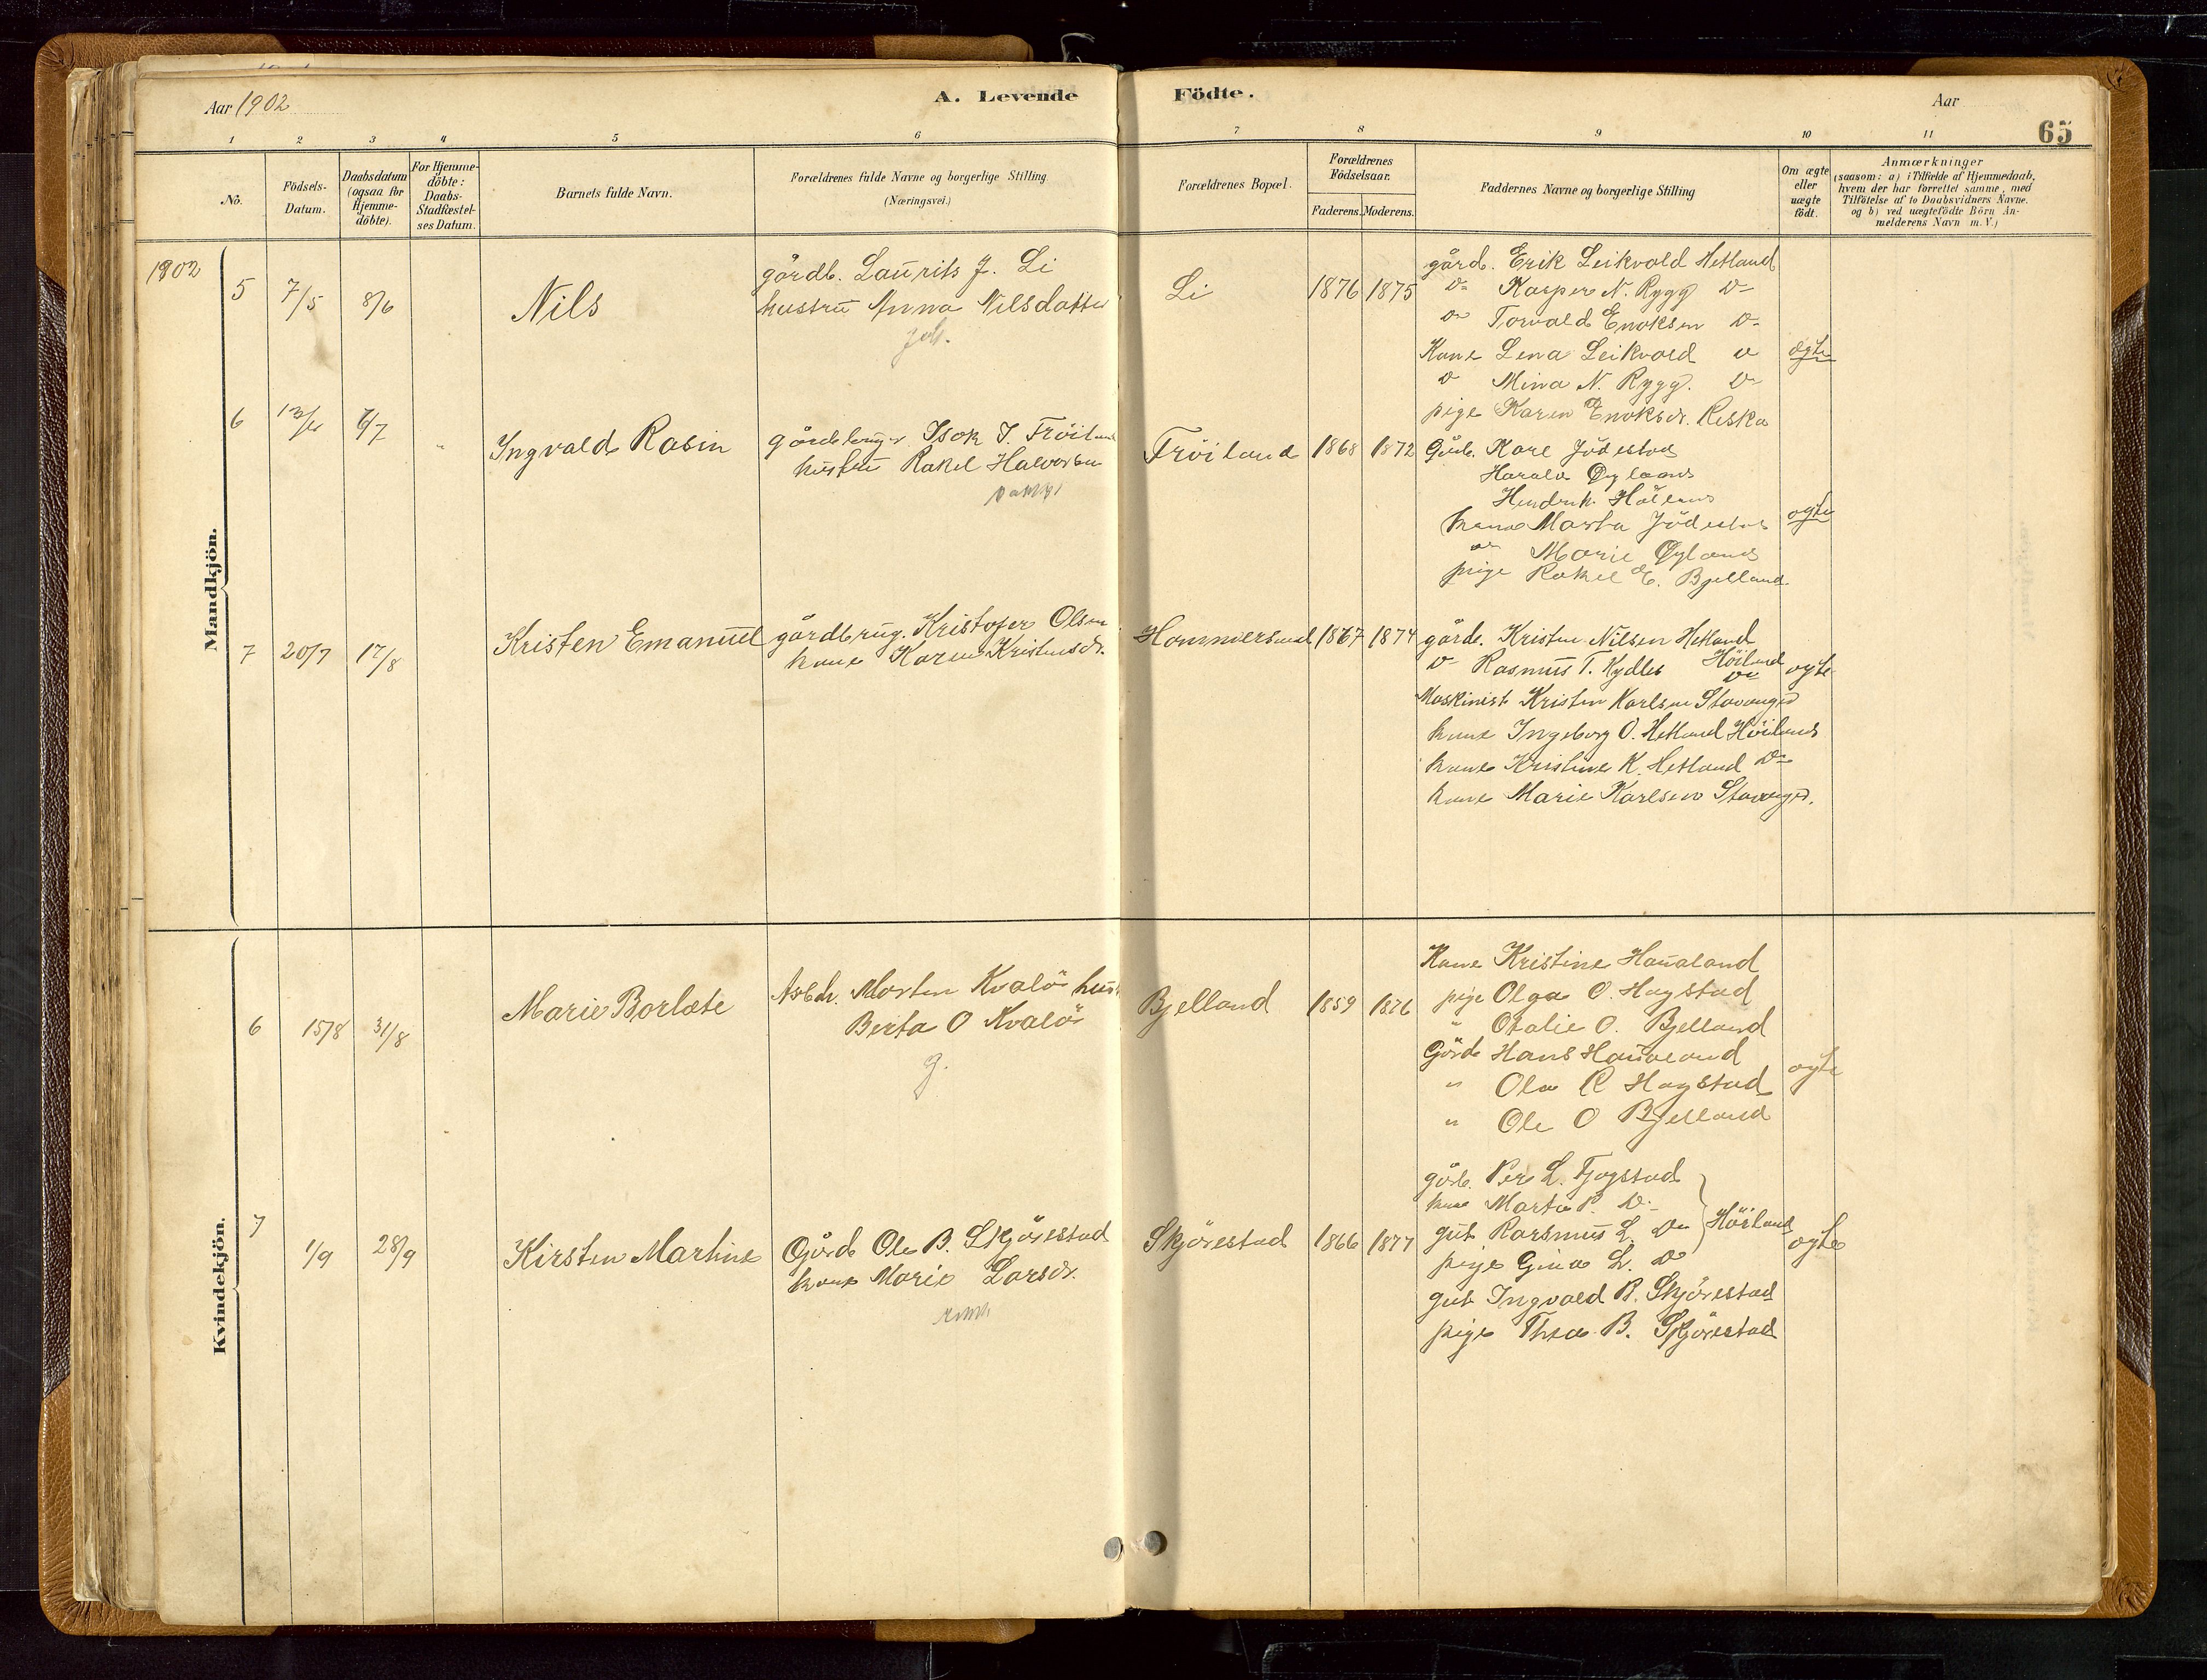 Aar 1902
A. Levende
Födte.
Aar
65
1 2 3 4 5 6 7 8 9 10 11
No.
Födsels-
Datum.
Daabsdatum
(ogsaa for
Hjemme-
döbte).
For Hjemme-
döbte:
Daabs-
Stadfæstel-
ses Datum.
Barnets fulde Navn.
Forældrenes fulde Navne og borgerlige Stilling
(Næringsvei.)
Forældrenes Bopæl.
Forældrenes
Födselsaar.
Faderens. Moderens.
Faddernes Navne og borgerlige Stilling
Om ægte
eller
uægte
födt.
Anmærkninger
(saasom: a) i Tilfælde af Hjemmedaab,
hvem der har forrettet samme, med
Tilföielse af to Daabsvidners Navne.
og b) ved uægtefödte Börn An-
melderens Navn m.V.)
Mandkjön.
1902
5 7/5 8/6
Nils
gårdb. Laurits J. Li
hustru Anna Nilsdatter
Li 1876 1875
gårdb. Erik Leikvold Hetland
Do Kasper N. Rygg Do
Do Torvald Enoksen Do
Kone Lena Leikvold Do
Do Mina N. Rygg. Do
pige Karen Enoksdr. Riska
ægte
6 6/7
Ingvald Rasin
gårdbruger Isak J. Tröiland
hustru Rakel Halvorsen
Tröiland 1868 1872
Gårdb. Karl Jödestad
Harald Öyland
Hendrik Höiland
kone Marta Jödestad
Do Marie Öyland
pige Rakel E. Bjelland
ægte
7 20/7 17/8
Kristen Emanuel
gårdbrug. Kristofer Olsen
kone Karen Kristensdr.
Hommersand 1867 1874
gårdb. Kristen Nilsen Hetland Höiland
Do Rasmus T. Kydles Do
Maskinist Kristen Karlsen Stavanger
kone Ingeborg O. Hetland Höiland
kone Kristine K. Hetland Do
kone Marie Karlsen Stavanger.
ægte
Kvindekjön.
6 15/8 31/8
Marie Borlate
Arbdr. Morten Kvalö hust
Berta O Kvalö
g.
Bjelland 1859 1876
Kone Kristine Haualand
pige Olga O. Hogstad
" Otalie O. Bjelland
Gårdb Hans Haualand
" Ola R Hogstad
" Ole O Bjelland
ægte
7 1/9 28/9
Kirsten Martine
Gårdb Ole B. Skjörestad
kone Marie Larsdr.
Skjörestad 1866 1877
gårdb. Per L. Tjogstad
kone Marta P. Do
gut Rasmus L. Do
pige Gina L. Do
Höiland
gut Ingvald B. Skjörestad
pige Thea B. Skjörestad
ægte